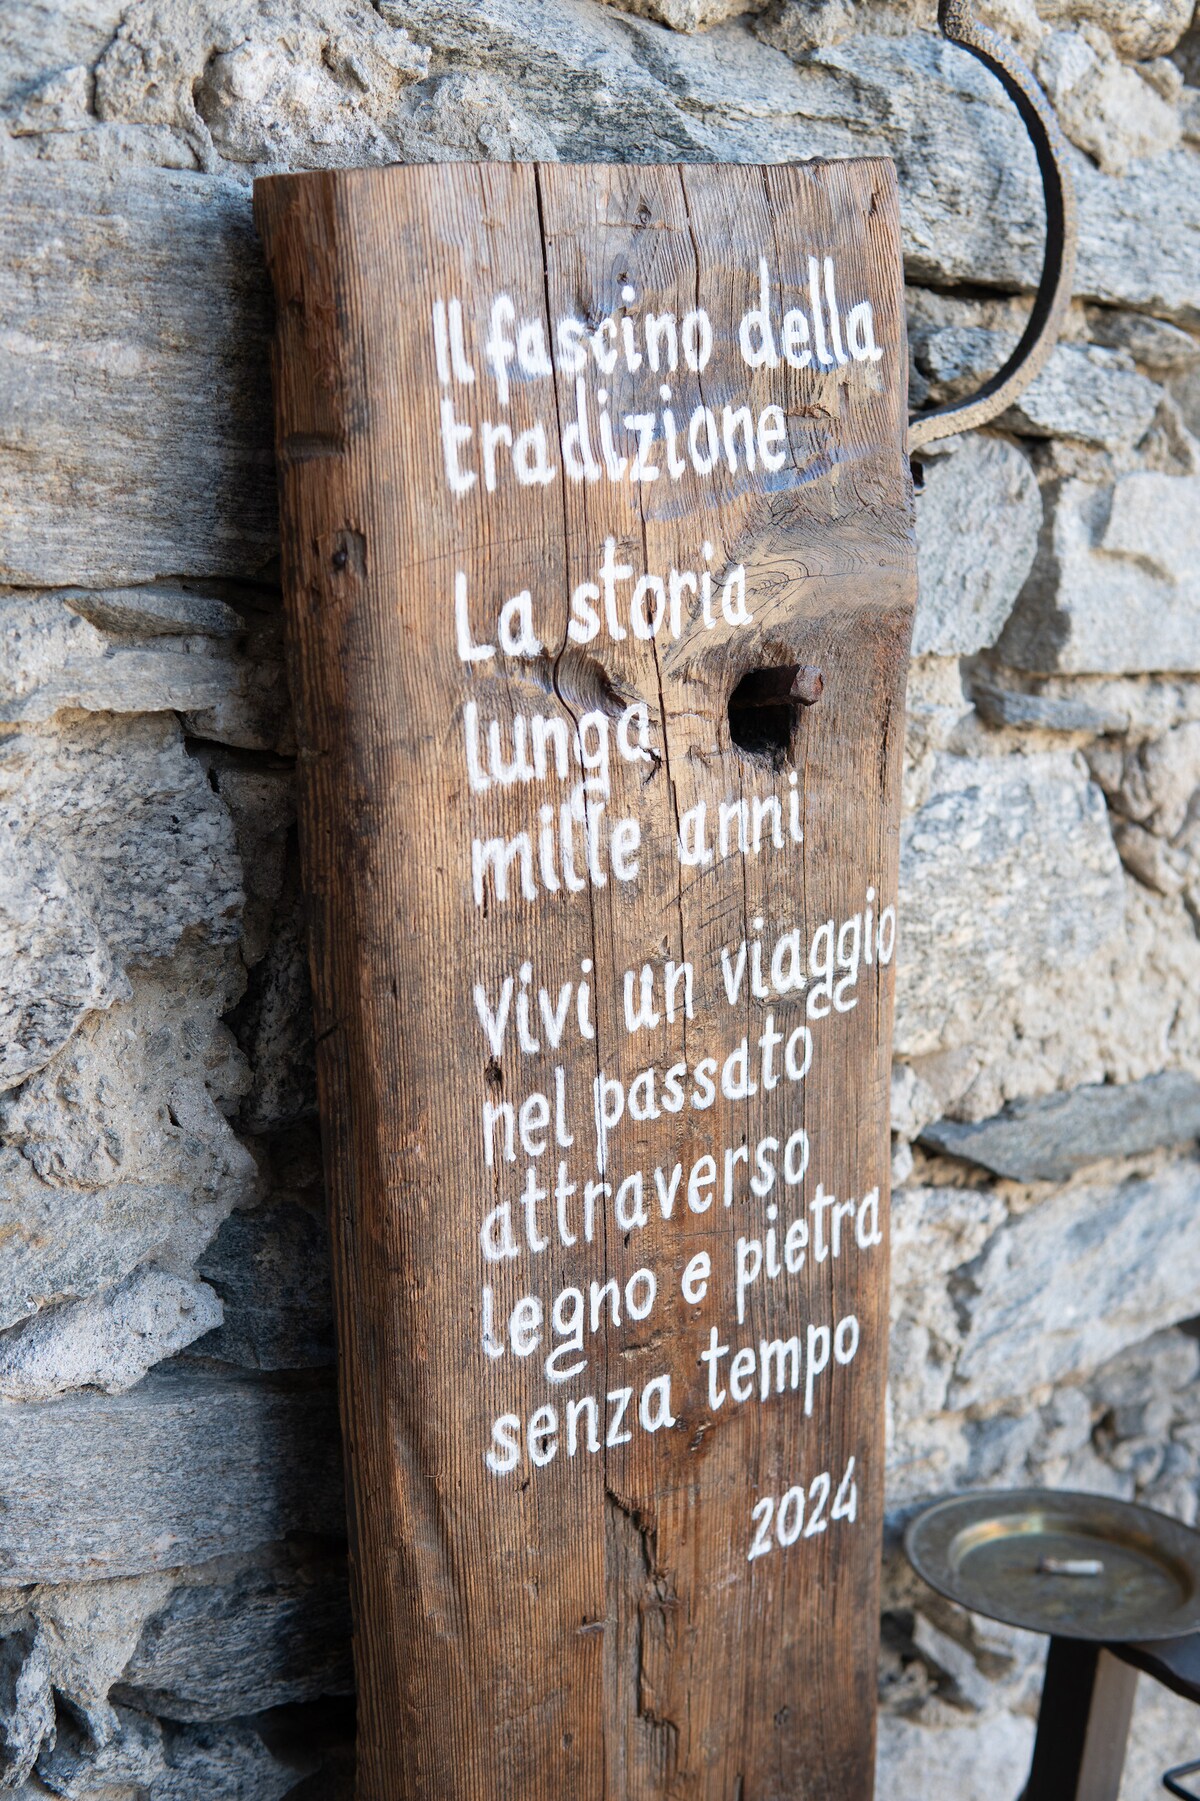 Il fascino della
tradizione
La storia
lunga
mille anni
Vivi un viaggio
nel passato
attraverso
legno e pietra
senza tempo
2024